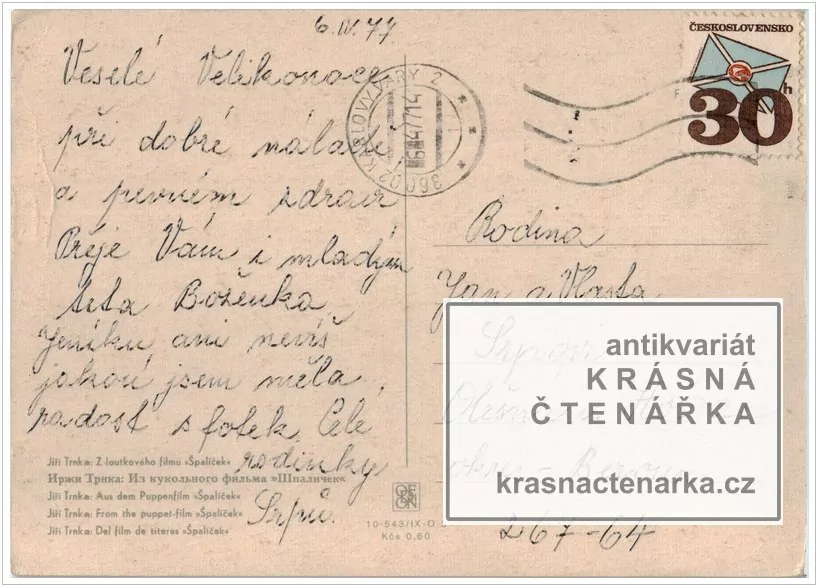 6.IV.77
Veselé Velikonoce
při dobré náladě
a pevném zdraví
Přeje Vám i mladým
teta Boženka
Jeníku ani nevíš
jakou jsem měla
radost s fotek Celé
rodinky
Srpů.
Jiří Trnka: Z loutkového filmu »Špalíček«
Иржи Трнка: Из кукольного фильма »Шпаличек«
Jiří Trnka: Aus dem Puppenfilm »Špalíček«
Jiří Trnka: From the puppet-film »Špalíček«
Jiří Trnka: Del film de titeres »Špalíček«
ORBIS
10-543/IX-O
Kčs 0,60
360 02 KARLOVY VARY 2
ČESKOSLOVENSKO
30h
Rodina
Jan a Vlasta
Srpovi
okr. Beroun
267-64
antikvariát
KRÁSNÁ
ČTENÁŘKA
krasnactenarka.cz